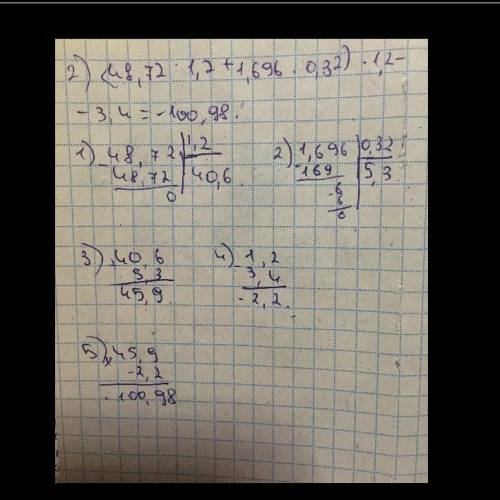 2) (48,72 : 1,2 + 1,696 : 0,32) · 1,2 -
- 3,4 = -100,98.
1) 48,72 | 1,2
48,72 | 40,6
0
2) 1,696 | 0,32
169 | 5,3
- 6
6
0
3) 40,6
5,3
45,9
4) - 1,2
3,4
- 2,2.
5) x 45,9
-2,2
-100,98